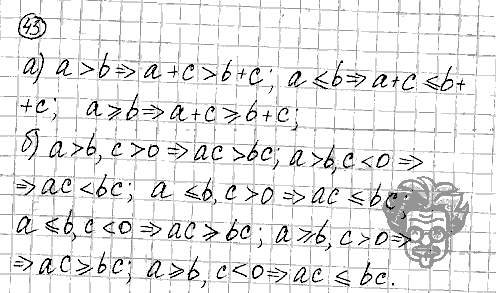 43
а) a > b ⇒ a + c > b + c; a ≤ b ⇒ a + c ≤ b +
+ c; a ≥ b ⇒ a + c ≥ b + c;
б) a > b, c > 0 ⇒ ac > bc; a > b, c < 0 ⇒
⇒ ac < bc; a ≤ b, c > 0 ⇒ ac ≤ bc;
a ≤ b, c < 0 ⇒ ac ≥ bc; a ≥ b, c > 0 ⇒
⇒ ac ≥ bc; a ≥ b, c < 0 ⇒ ac ≤ bc.